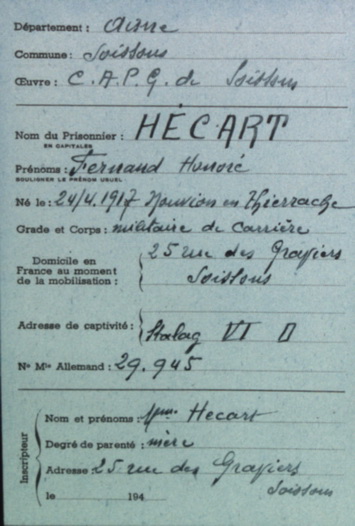 Département : Aisne
Commune : Soissons
Œuvre : C.A.P.G. de Soissons
Nom du Prisonnier : HÉCART
EN CAPITALES
Prénoms : Fernand Honoré
SOULIGNER LE PRÉNOM USUEL
Né le : 24/4.1917 Nouvion en Thierrache
Grade et Corps : militaire de Carrière
Domicile en France au moment de la mobilisation : 25 rue des Graviers
Soissons
Adresse de captivité : Stalag VI D
No Mle Allemand : 29.945
Inscripteur
Nom et prénoms : Mme Hecart
Degré de parenté : mère
Adresse : 25 rue des Graviers
Soissons
le 194